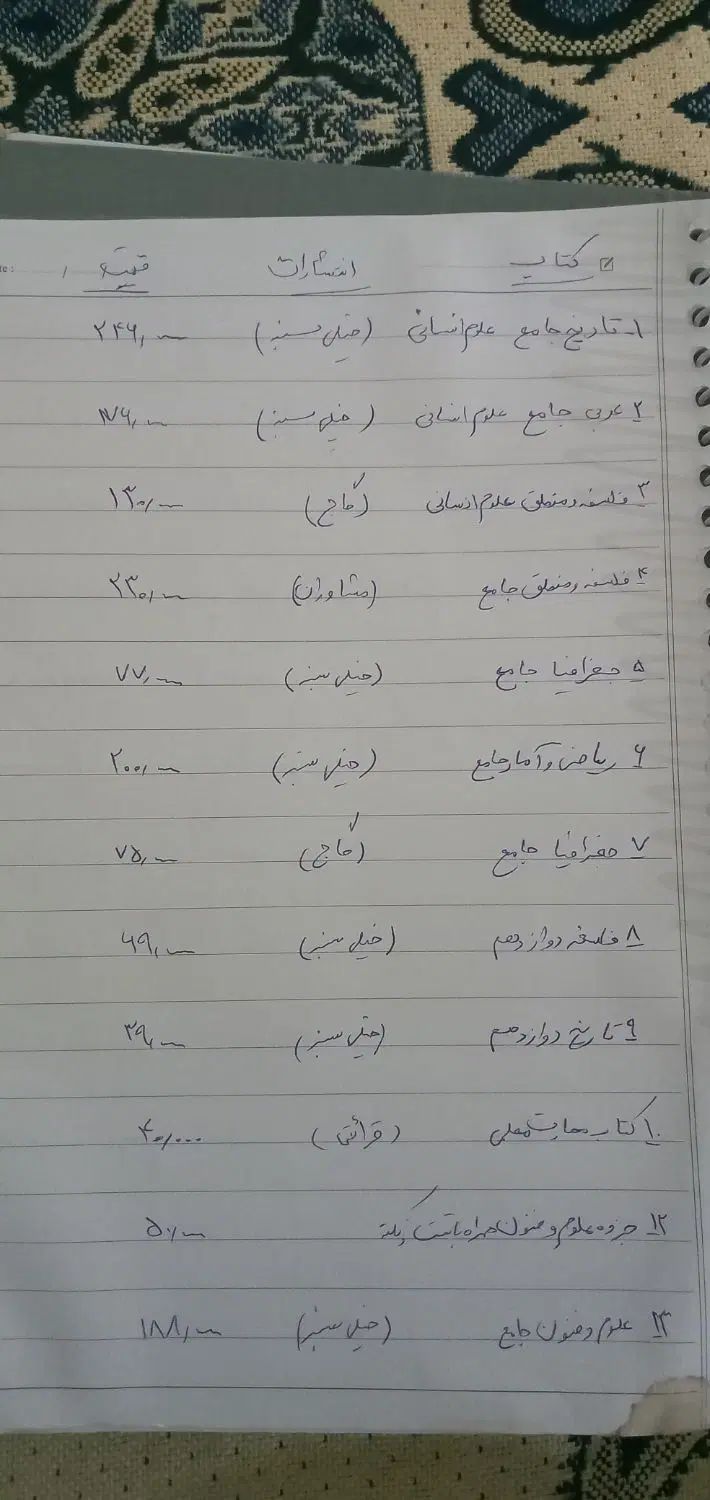 کتاب انتشارات قیمت
۱- تاریخ جامع علوم انسانی (خیلی سبز) ۲۴۶,۰۰۰
۲ عربی جامع علوم انسانی (خیلی سبز)
۳ فلسفه و منطق علوم انسانی (گاج) ۱۳۰,۰۰۰
۴ فلسفه و منطق جامع (مشاوران) ۲۳۰,۰۰۰
۵ جغرافیا جامع (خیلی سبز) ۷۷,۰۰۰
۶ ریاضی و آمار جامع (خیلی سبز) ۲۰۰,۰۰۰
۷ جغرافیا جامع (گاج) ۷۵,۰۰۰
۸ فلسفه دوازدهم (خیلی سبز) ۶۹,۰۰۰
۹ تاریخ دوازدهم (خیلی سبز) ۳۹,۰۰۰
۱۰ کتاب مهارت معلمی (قرائتی) ۴۰,۰۰۰
۱۲ جزوه علوم و فنون همراه با تست ۵۰,۰۰۰
۱۳ علوم و فنون جامع (خیلی سبز) ۱۸۸,۰۰۰